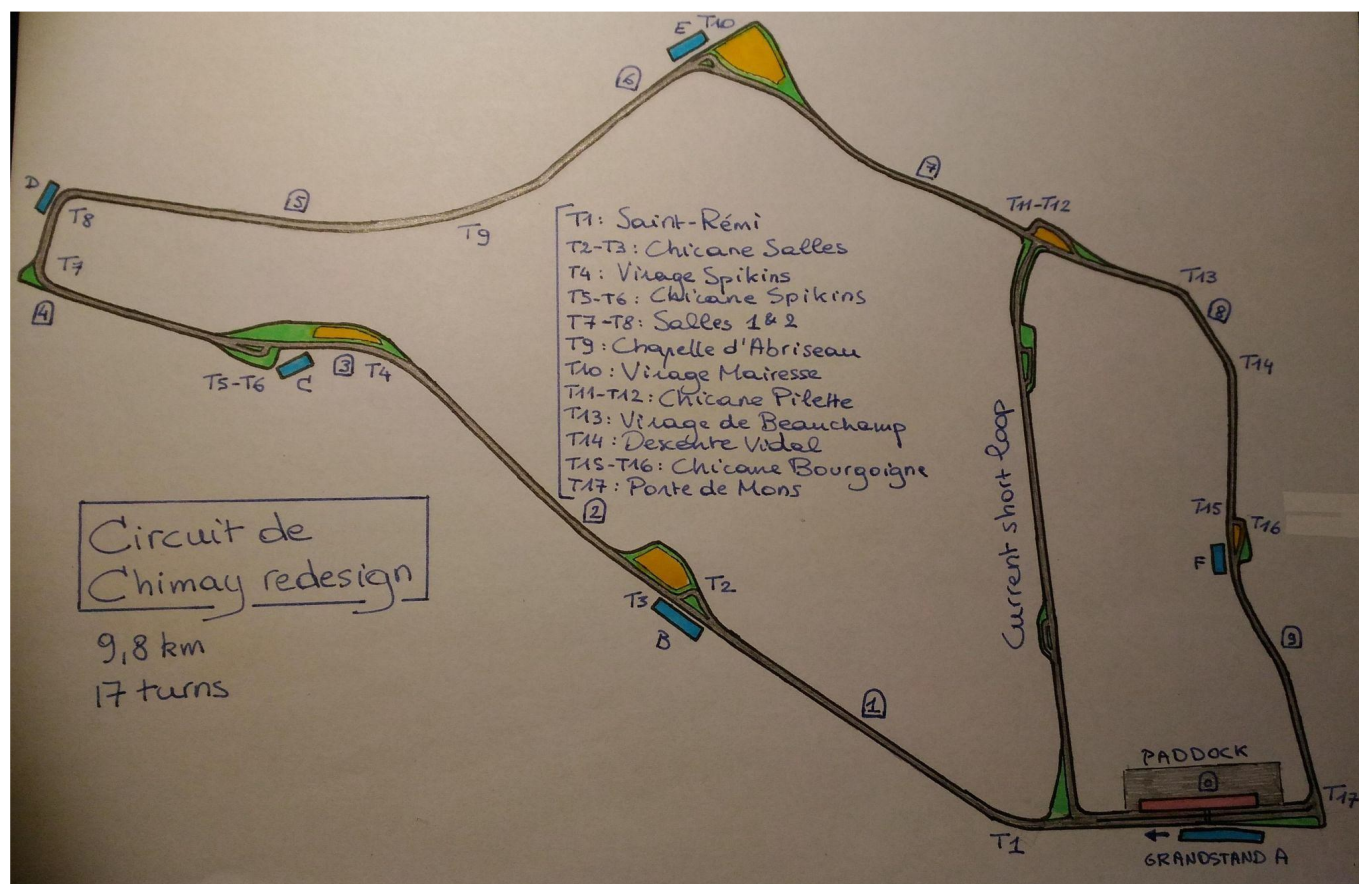 E T10
6
7
D
T8
5
T9
T11-T12
T7
4
T13
8
T5-T6
C
3
T4
T14
T1: Saint-Rémi
T2-T3: Chicane Salles
T4: Virage Spikins
T5-T6: Chicane Spikins
T7-T8: Salles 1 & 2
T9: Chapelle d'Abriseau
T10: Virage Mairesse
T11-T12: Chicane Pilette
T13: Virage de Beauchamp
T14: Descente Vidal
T15-T16: Chicane Bourgoigne
T17: Porte de Mons
Current short loop
2
T15
T16
F
Circuit de
Chimay redesign
9,8 km
17 turns
T3
T2
B
9
1
PADDOCK
0
T17
T1
←
GRANDSTAND A